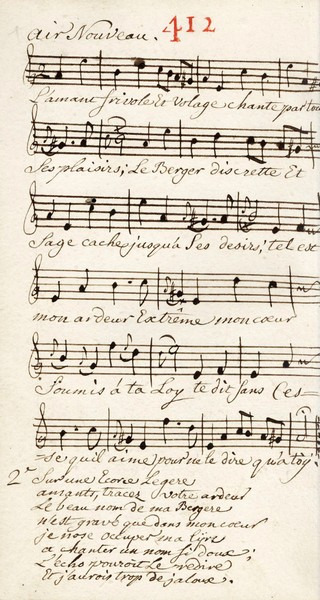 Air Nouveau. 412
L'amant frivole et volage chante partou
Ses plaisirs; Le Berger discrette Et
Sage cache jusqu'à Ses desirs; tel est
mon ardeur Extrême mon cœur
Soumis à ta Loy te dit sans Ces-
=se qu'il aime pour ne le dire qu'à toy:
2e Sur une Ecorce Legere
amants, tracez votre ardeur
Le beau nom de ma Bergere
n'est gravé que dans mon cœur
je nose occuper ma lyre
a chanter un nom si doux;
L'echo pouroit Le redire
Et j'aurois trop de jaloux.